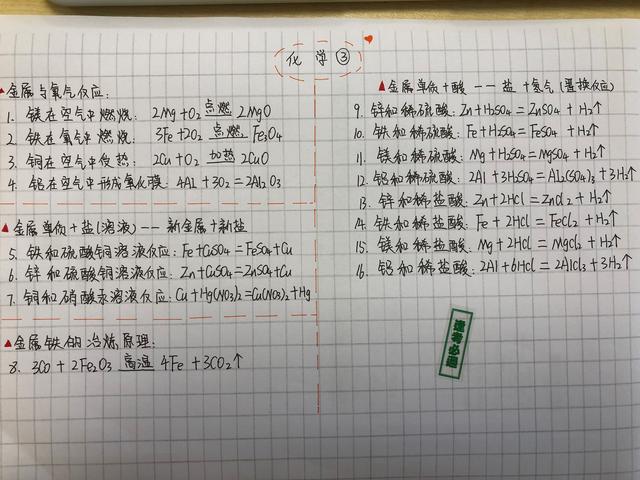 化学③
▲金属与氧气反应:
1. 镁在空气中燃烧: 2Mg+O₂ 点燃 2MgO
2. 铁在氧气中燃烧: 3Fe+2O₂ 点燃 Fe₃O₄
3. 铜在空气中受热: 2Cu+O₂ 加热 2CuO
4. 铝在空气中形成氧化膜: 4Al+3O₂=2Al₂O₃
▲金属单质+盐(溶液)——新金属+新盐
5. 铁和硫酸铜溶液反应: Fe+CuSO₄=FeSO₄+Cu
6. 锌和硫酸铜溶液反应: Zn+CuSO₄=ZnSO₄+Cu
7. 铜和硝酸汞溶液反应: Cu+Hg(NO₃)₂=Cu(NO₃)₂+Hg
▲金属铁的冶炼原理:
8. 3CO+2Fe₂O₃ 高温 4Fe+3CO₂↑
▲金属单质+酸——盐+氢气(置换反应)
9. 锌和稀硫酸: Zn+H₂SO₄=ZnSO₄+H₂↑
10. 铁和稀硫酸: Fe+H₂SO₄=FeSO₄+H₂↑
11. 镁和稀硫酸: Mg+H₂SO₄=MgSO₄+H₂↑
12. 铝和稀硫酸: 2Al+3H₂SO₄=Al₂(SO₄)₃+3H₂↑
13. 锌和稀盐酸: Zn+2HCl=ZnCl₂+H₂↑
14. 铁和稀盐酸: Fe+2HCl=FeCl₂+H₂↑
15. 镁和稀盐酸: Mg+2HCl=MgCl₂+H₂↑
16. 铝和稀盐酸: 2Al+6HCl=2AlCl₃+3H₂↑
逢考必过